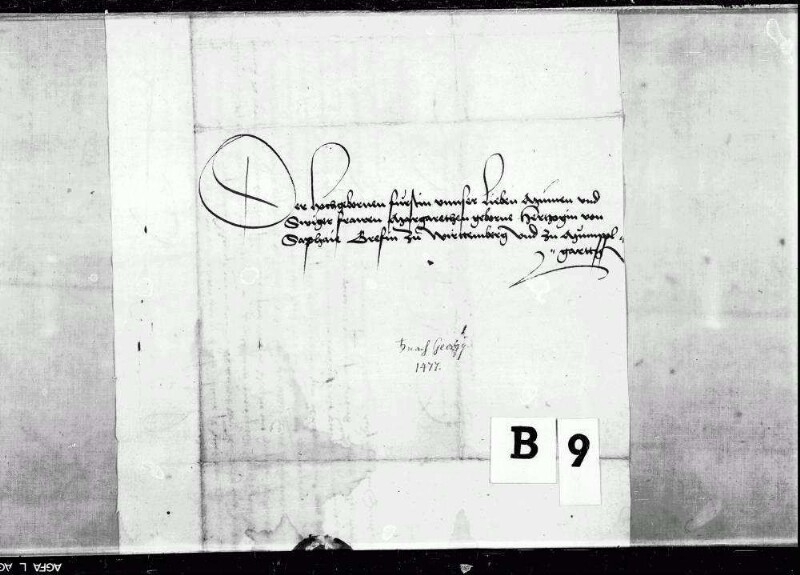 Der hochgebornen furstin unnser lieben Mumen und
Swiger frawen Margarethen geborne Hertzogin von
Saphaie Grefin zu Wirttemberg und zu Mumppl-
"gartt
nach Georgij
1477.
B 9
AGFA L AG